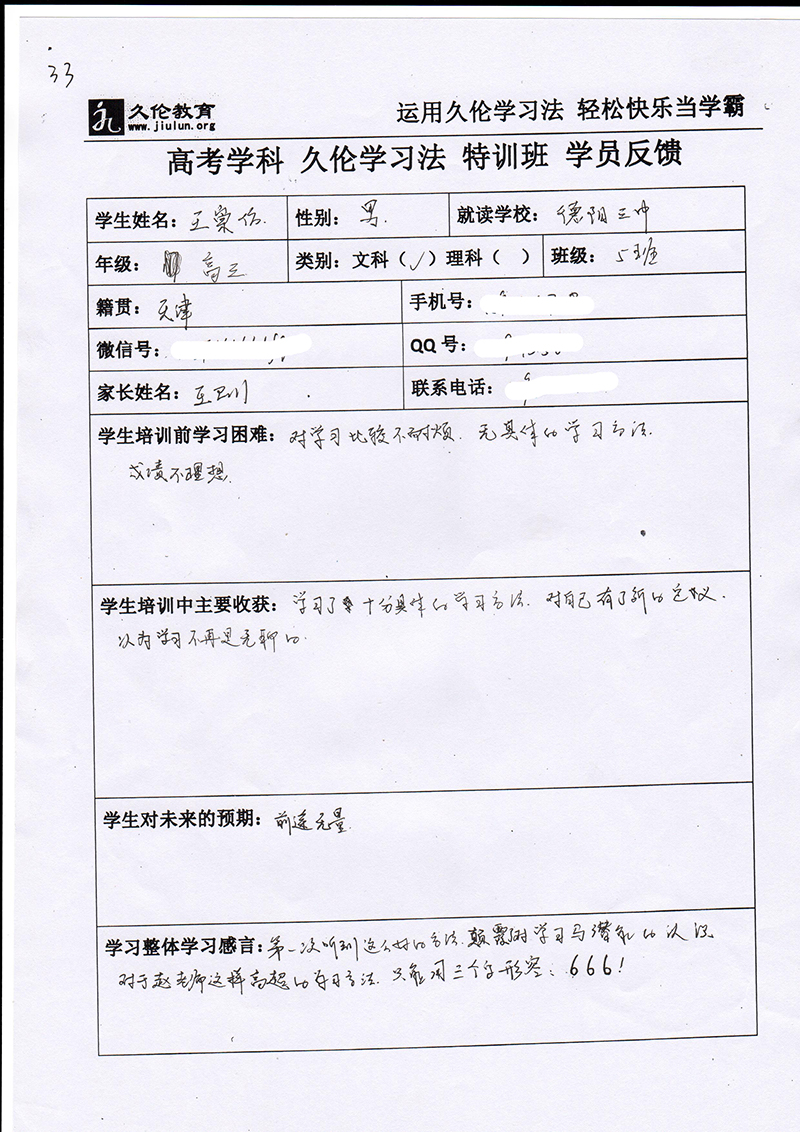 33
久伦教育
www.jiulun.org
运用久伦学习法 轻松快乐当学霸
高考学科 久伦学习法 特训班 学员反馈
学生姓名：王 性别：男. 就读学校：德阳三中
年级：高三 类别：文科（✓）理科（ ） 班级：5班
籍贯：天津 手机号：
微信号： QQ号：
家长姓名：王卫川 联系电话：
学生培训前学习困难：对学习比较不耐烦. 无具体的学习方法.
成绩不理想.
学生培训中主要收获：学习了十分具体的学习方法. 对自己有了新的定义.
认为学习不再是无聊的.
学生对未来的预期：前途无量.
学习整体学习感言：第一次听到这么好的方法.颠覆对学习与潜能的认识
对于赵老师这样高超的学习方法. 只能用三个字形容：666！